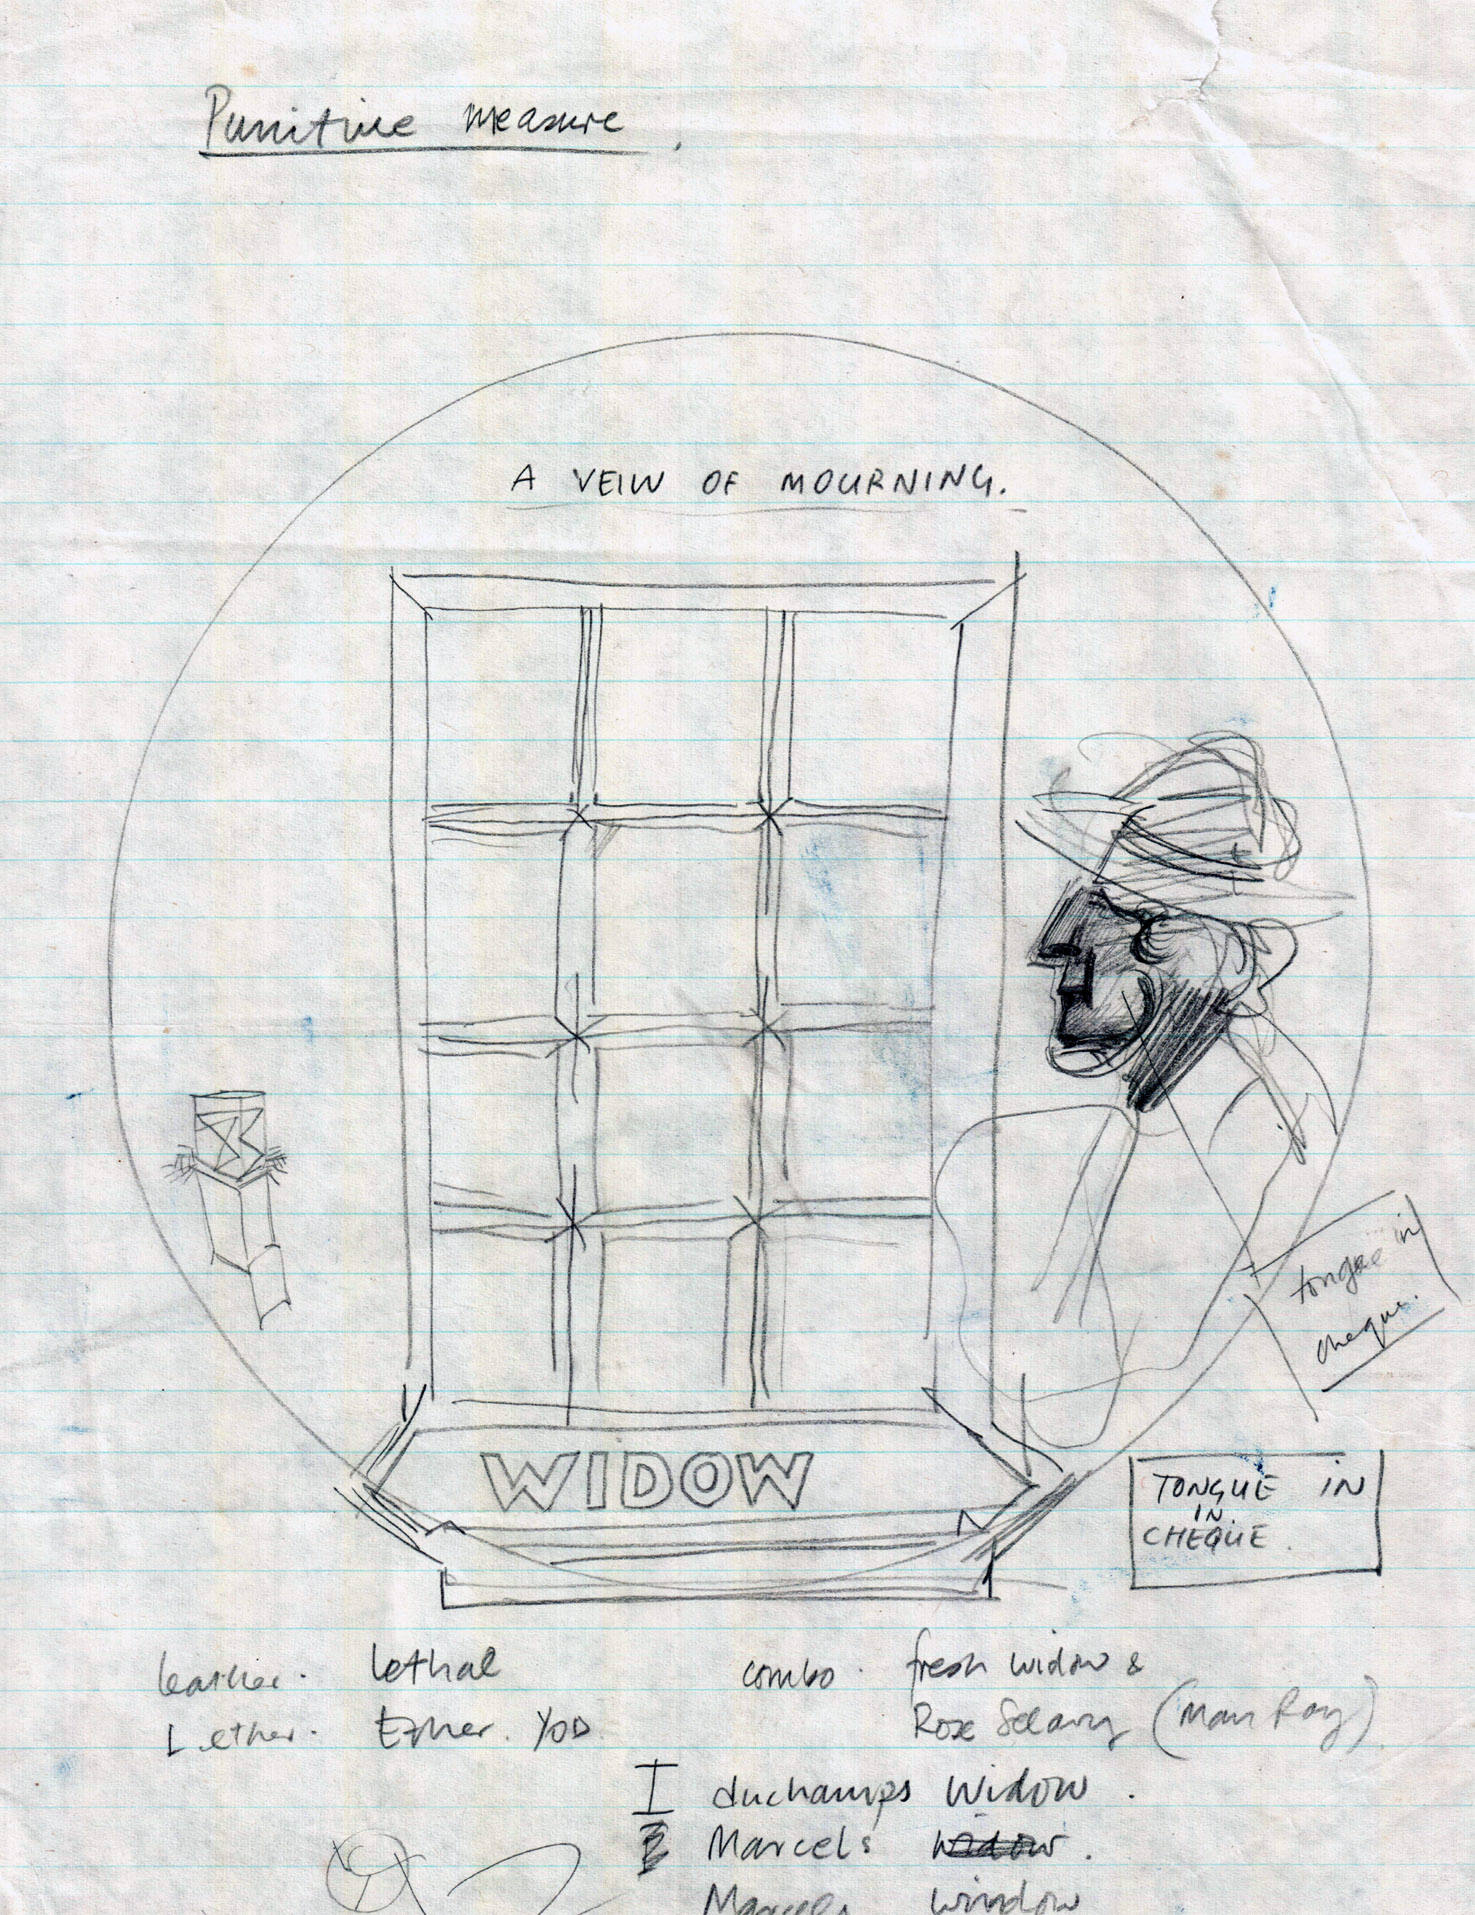 Punitive measure.
A VEIW OF MOURNING.
tongue in
cheque.
WIDOW
TONGUE IN
IN
CHEQUE.
leather. lethal combo. fresh widow &
Lether. Ether. YOD Rose Selavy (Man Ray)
I duchamps Widow.
Marcels widow.
Marcels window